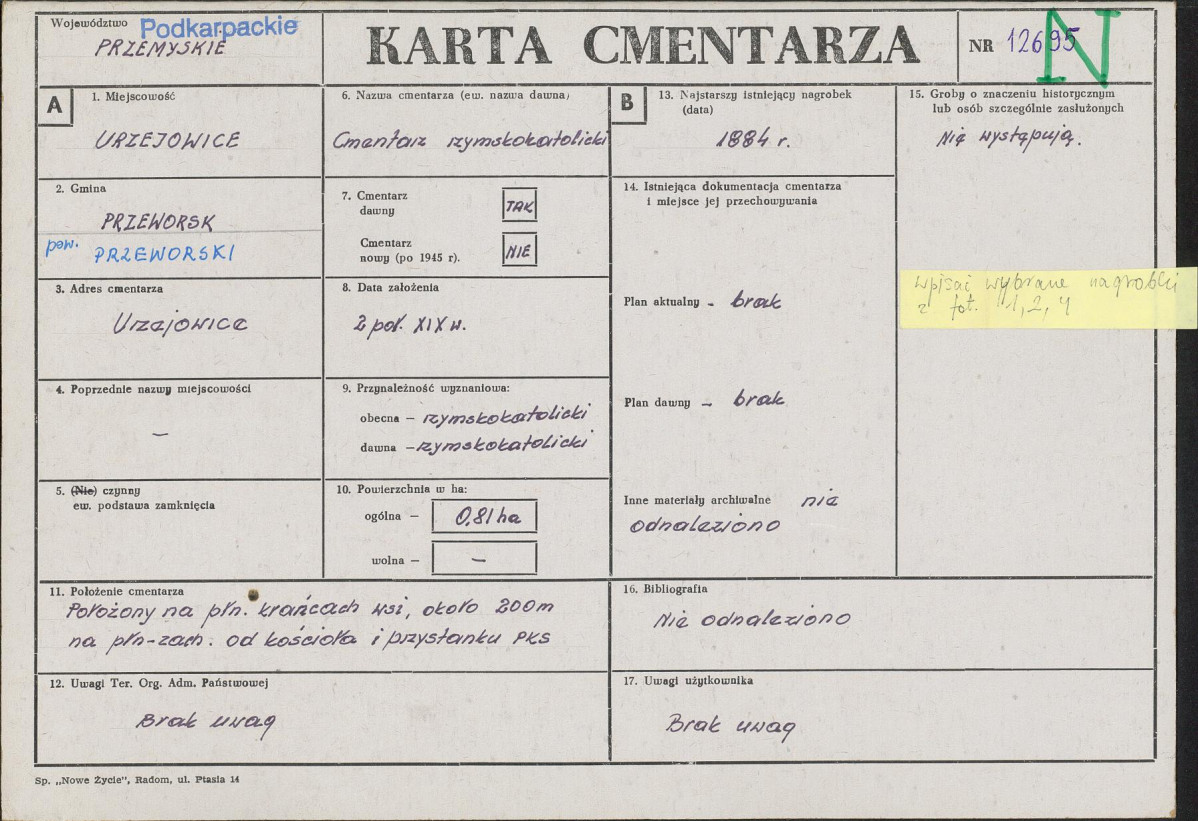 Województwo Podkarpackie
PRZEMYSKIE
KARTA CMENTARZA
NR 12695
N
A
1. Miejscowość
URZEJOWICE
2. Gmina
PRZEWORSK
pow. PRZEWORSKI
3. Adres cmentarza
Urzejowice
4. Poprzednie nazwy miejscowości
—
5. (Nie) czynny
ew. podstawa zamknięcia
6. Nazwa cmentarza (ew. nazwa dawna)
Cmentarz rzymskokatolicki
7. Cmentarz
dawny TAK
Cmentarz
nowy (po 1945 r). NIE
8. Data założenia
2 poł. XIX w.
9. Przynależność wyznaniowa:
obecna – rzymskokatolicki
dawna – rzymskokatolicki
10. Powierzchnia w ha:
ogólna – 0,81 ha
wolna – —
11. Położenie cmentarza
Położony na płn. krańcach wsi, około 200m
na płn-zach. od kościoła i przystanku PKS
12. Uwagi Ter. Org. Adm. Państwowej
Brak uwag
B
13. Najstarszy istniejący nagrobek
(data)
1884 r.
14. Istniejąca dokumentacja cmentarza
i miejsce jej przechowywania
Plan aktualny – brak
Plan dawny – brak
Inne materiały archiwalne nie
odnaleziono
15. Groby o znaczeniu historycznym
lub osób szczególnie zasłużonych
Nie występują.
wpisać wybrane nagrobki
z fot. 1, 2, 4
16. Bibliografia
Nie odnaleziono
17. Uwagi użytkownika
Brak uwag
Sp. „Nowe Życie", Radom, ul. Ptasia 14